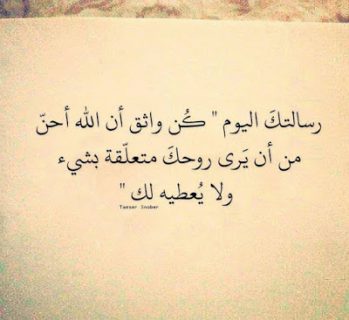 رسالتكَ اليوم " كُن واثق أن الله أحنّ
من أن يَرى روحكَ متعلّقة بشيء
ولا يُعطيه لك "
Tameer Snober